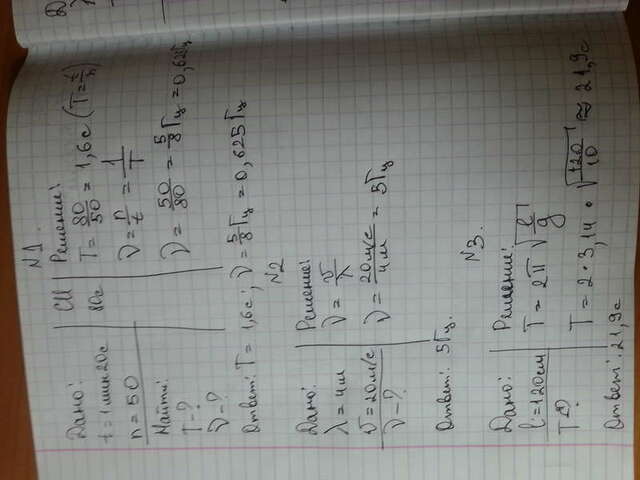 N1.
Дано:
t = 1 мин 20с
n = 50
Найти:
T - ?
ν - ?
СИ
80с
Решение:
T = 80/50 = 1,6с (T = t/n)
ν = n/t = 1/T
ν = 50/80 = 5/8 Гц = 0,625Гц
Ответ: T = 1,6с; ν = 5/8 Гц = 0,625Гц
N2
Дано:
λ = 4м
υ = 20м/с
ν - ?
Решение:
ν = υ/λ
ν = 20м/с / 4м = 5Гц
Ответ: 5Гц.
N3.
Дано:
l = 120см
T - ?
Решение:
T = 2π √(l/g)
T = 2 · 3,14 · √(120/10) ≈ 21,9с
Ответ: 21,9с